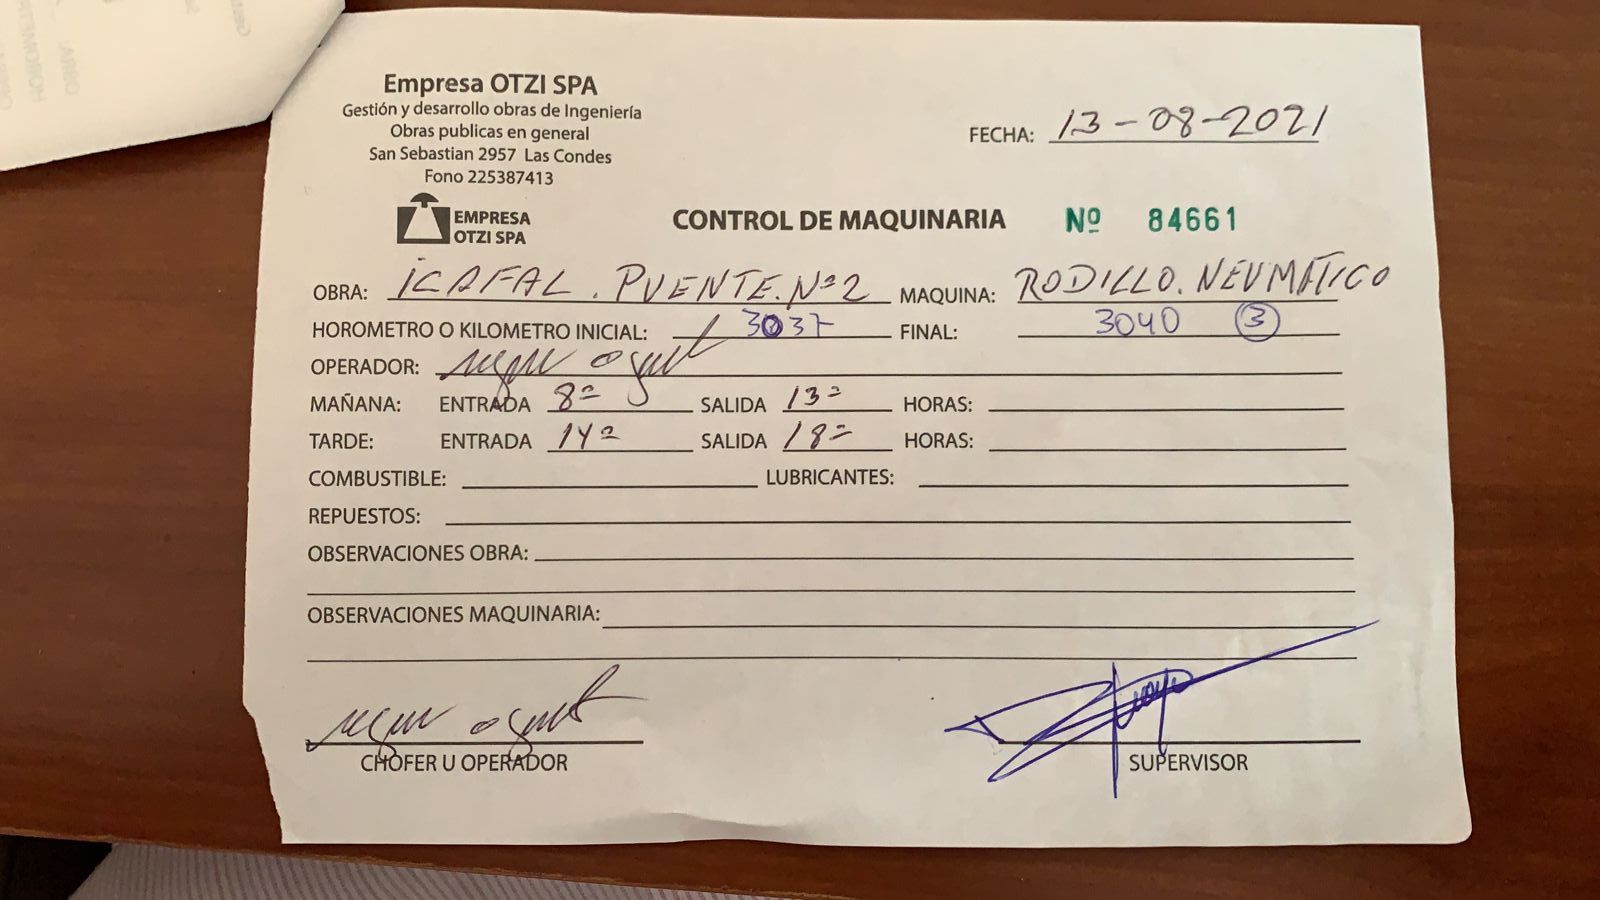 Empresa OTZI SPA
Gestión y desarrollo obras de Ingeniería
Obras publicas en general
San Sebastian 2957 Las Condes
Fono 225387413
FECHA: 13-08-2021
EMPRESA
OTZI SPA
CONTROL DE MAQUINARIA Nº 84661
OBRA: ICAFAL. PUENTE. Nº2 MAQUINA: RODILLO. NEUMÁTICO
HOROMETRO O KILOMETRO INICIAL: 3037 FINAL: 3040 3
OPERADOR:
MAÑANA: ENTRADA 8º SALIDA 13º HORAS:
TARDE: ENTRADA 14º SALIDA 18º HORAS:
COMBUSTIBLE: LUBRICANTES:
REPUESTOS:
OBSERVACIONES OBRA:
OBSERVACIONES MAQUINARIA:
CHOFER U OPERADOR SUPERVISOR